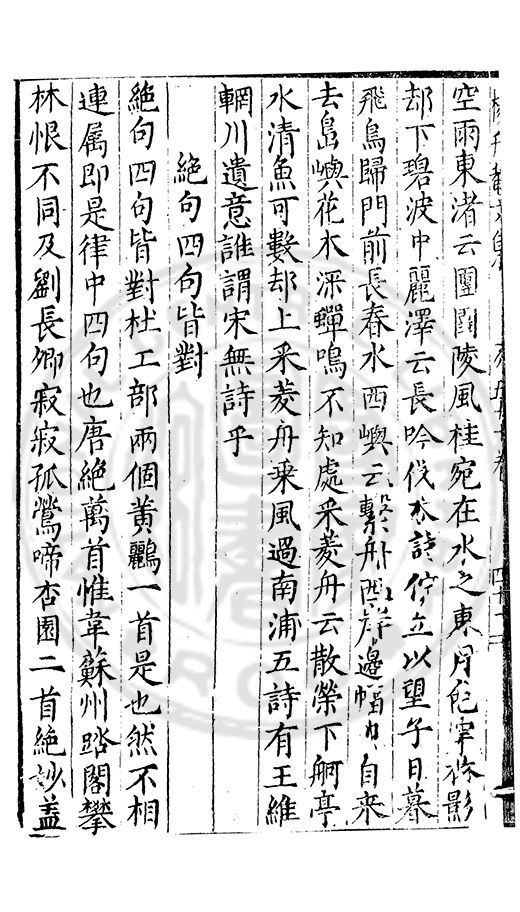 空雨東渚云團團陵風桂宛在水之東月色穿林影
却下碧波中麗澤云長吟伐木詩停立以望子日暮
飛鳥歸門前長春水西嶼云繫舟西岸邊幅巾自来
去島嶼花木深蟬鳴不知處采菱舟云散策下舸亭
水清魚可數却上采菱舟乗風過南浦五詩有王維
輞川遺意誰謂宋無詩乎
絶句四句皆對
絶句四句皆對杜工部兩個黄鸝一首是也然不相
連属即是律中四句也唐絶萬首惟韋蘇州踏閣攀
林恨不同及劉長卿寂寂孤鶯啼杏園二首絶妙盖